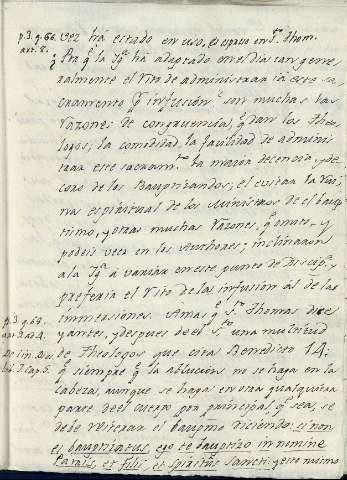 p. 3. q. 66. vez há estado en uso, es espreso en S.to Thom.
art. 7.
q Pra q.e la Yg.a há adoptado en esso dia tan gene-
ralmente el Rito de administrar la este sa-
cramento p.r infusion son muchas las
razones de congruencia, q.e dan los Theo-
logos; la comodidad, la facilidad de adminis-
trar este sacram.to la maior decencia, y de-
coro de los Bauptizandos; el evitar la rui-
na espiritual de los Ministros de el baup-
tismo, y otras muchas razones, q.e omito, y
podeis veer en los Authores; inclinaron
a la Yg.a á variar en este punto de Discip.a, y
preferir el Rito de las infusion á de las
inmersiones. A mas q.e S.to Thomas dice
p. 3. q. 68.
y antes, y despues de el S.to una multitud
de Theologos que citas Benedicto 14:
q.e siempre q.e la ablucion no se haga en la
cabeza, aunque se haga en otra qualquiera
parte de el cuerpo por principal q.e sea, se
debe reiterar el bauptmo diciendo: si non
es bauptizatus, ego te bauptizo in nomine
Patris, et Filii, et Spiritus Sancti: y esto mismo